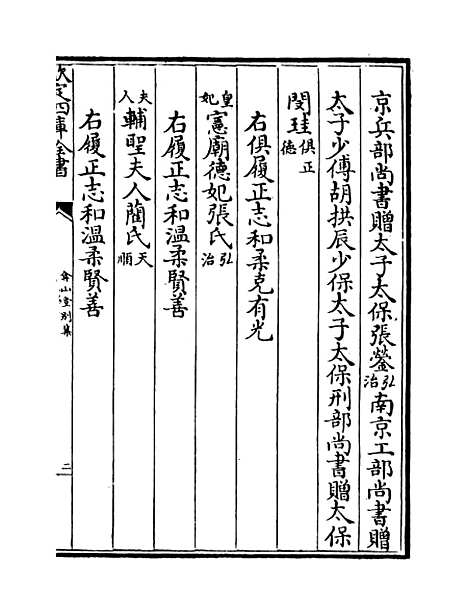 京兵部尚書贈太子太保張鎣弘治南京工部尚書贈
太子少傅胡拱辰少保太子太保刑部尚書贈太保
閔珪俱正德
右俱履正志和柔克有光
皇妃憲廟德妃張氏弘治
右履正志和溫柔賢善
夫人輔聖夫人藺氏天順
右履正志和溫柔賢善
欽定四庫全書
弇山堂別集
二